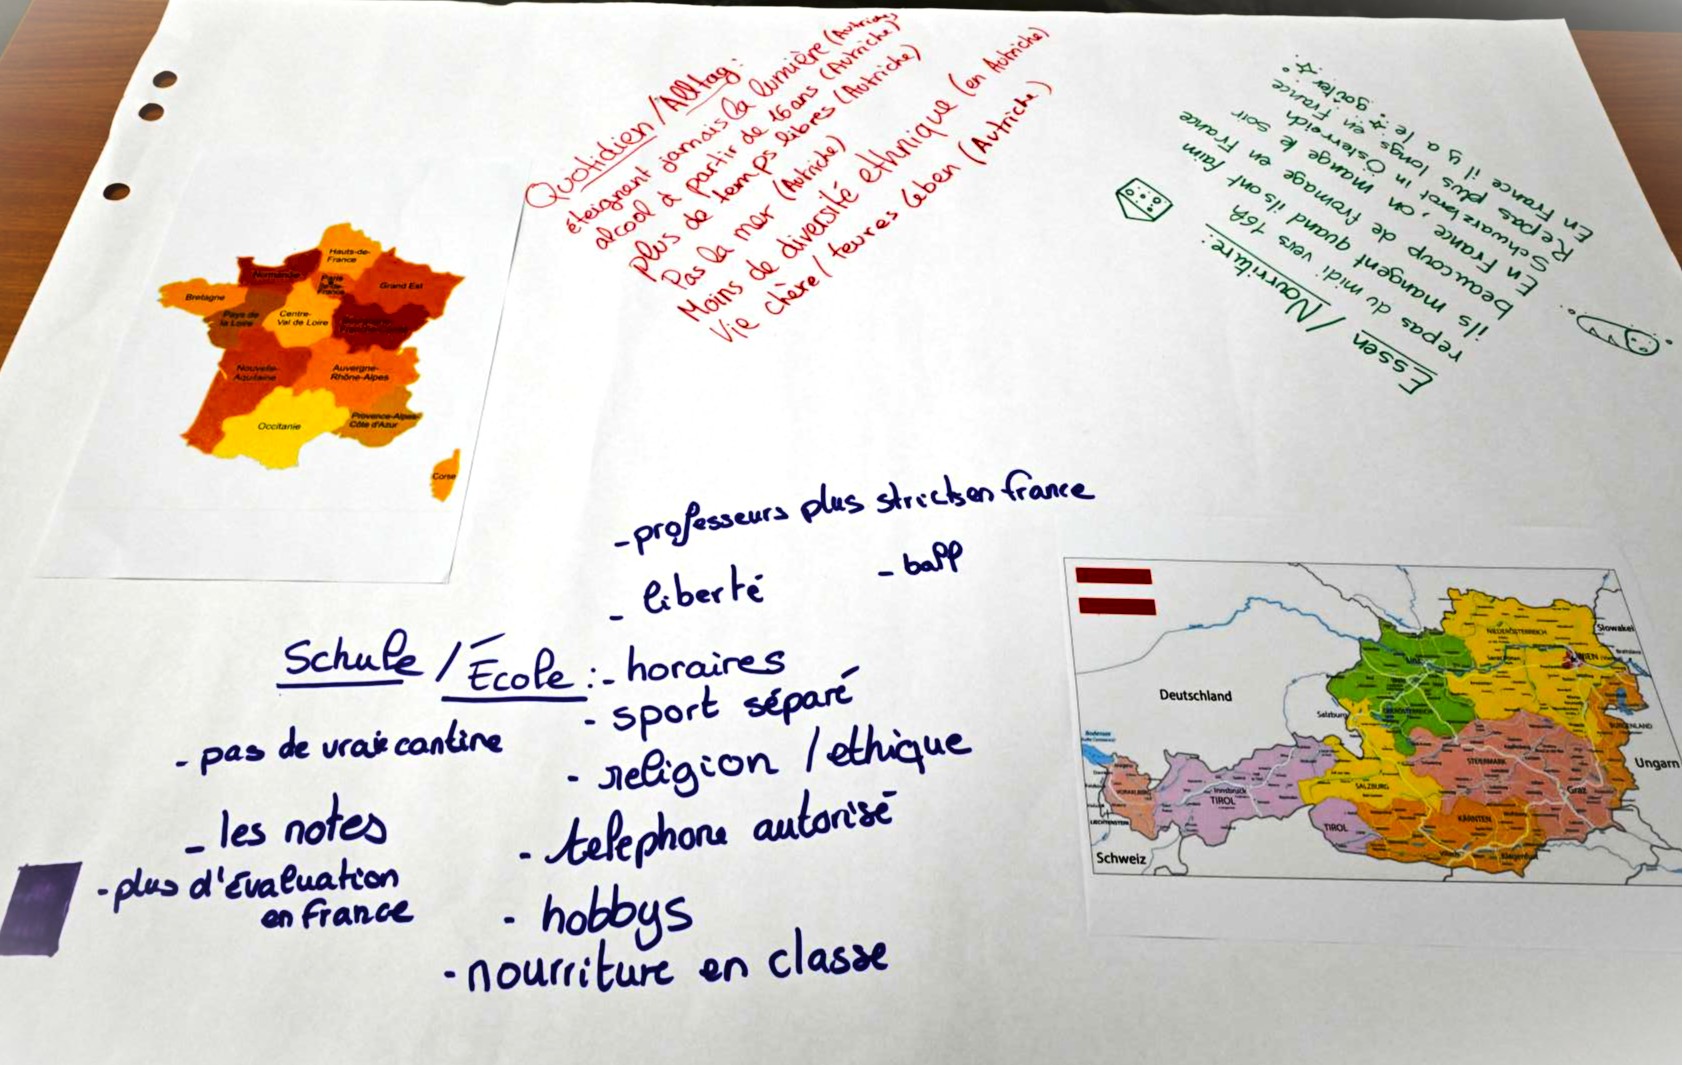 Quotidien/Alltag:
éteignant jamais la lumière (Autriche)
alcool à partir de 16 ans (Autriche)
plus de temps libres (Autriche)
Pas la mer (Autriche)
Moins de diversité ethnique (en Autriche)
Vie chère/ teures Leben (Autriche)
Essen / Nourriture:
repas du midi vers 16h
ils mangent quand ils ont faim
beaucoup de fromage en France
En France, on mange le soir
Schwarzbrot
Repas plus longs en France
in Österreich
En France il y a le goûter
Hauts-de-
France
Normandie
Paris
Île-de-
France
Grand Est
Bretagne
Pays de
la Loire
Centre-
Val de Loire
Bourgogne-
Franche-Comté
Nouvelle-
Aquitaine
Auvergne-
Rhône-Alpes
Occitanie
Provence-Alpes-
Côte d'Azur
Corse
- professeurs plus stricts en france
- liberté
- ball
Schule / École :
- horaires
- sport séparé
- religion / ethique
- telephone autorisé
- hobbys
- nourriture en classe
- pas de vraie cantine
- les notes
- plus d'évaluation
en france
Deutschland
Slowakei
Ungarn
Schweiz
LIECHTENSTEIN
Bodensee
NIEDERÖSTERREICH
WIEN
OBERÖSTERREICH
Linz
BURGENLAND
Salzburg
SALZBURG
STEIERMARK
Graz
KÄRNTEN
Klagenfurt
Villach
TIROL
Innsbruck
TIROL
VORARLBERG
Bratislava